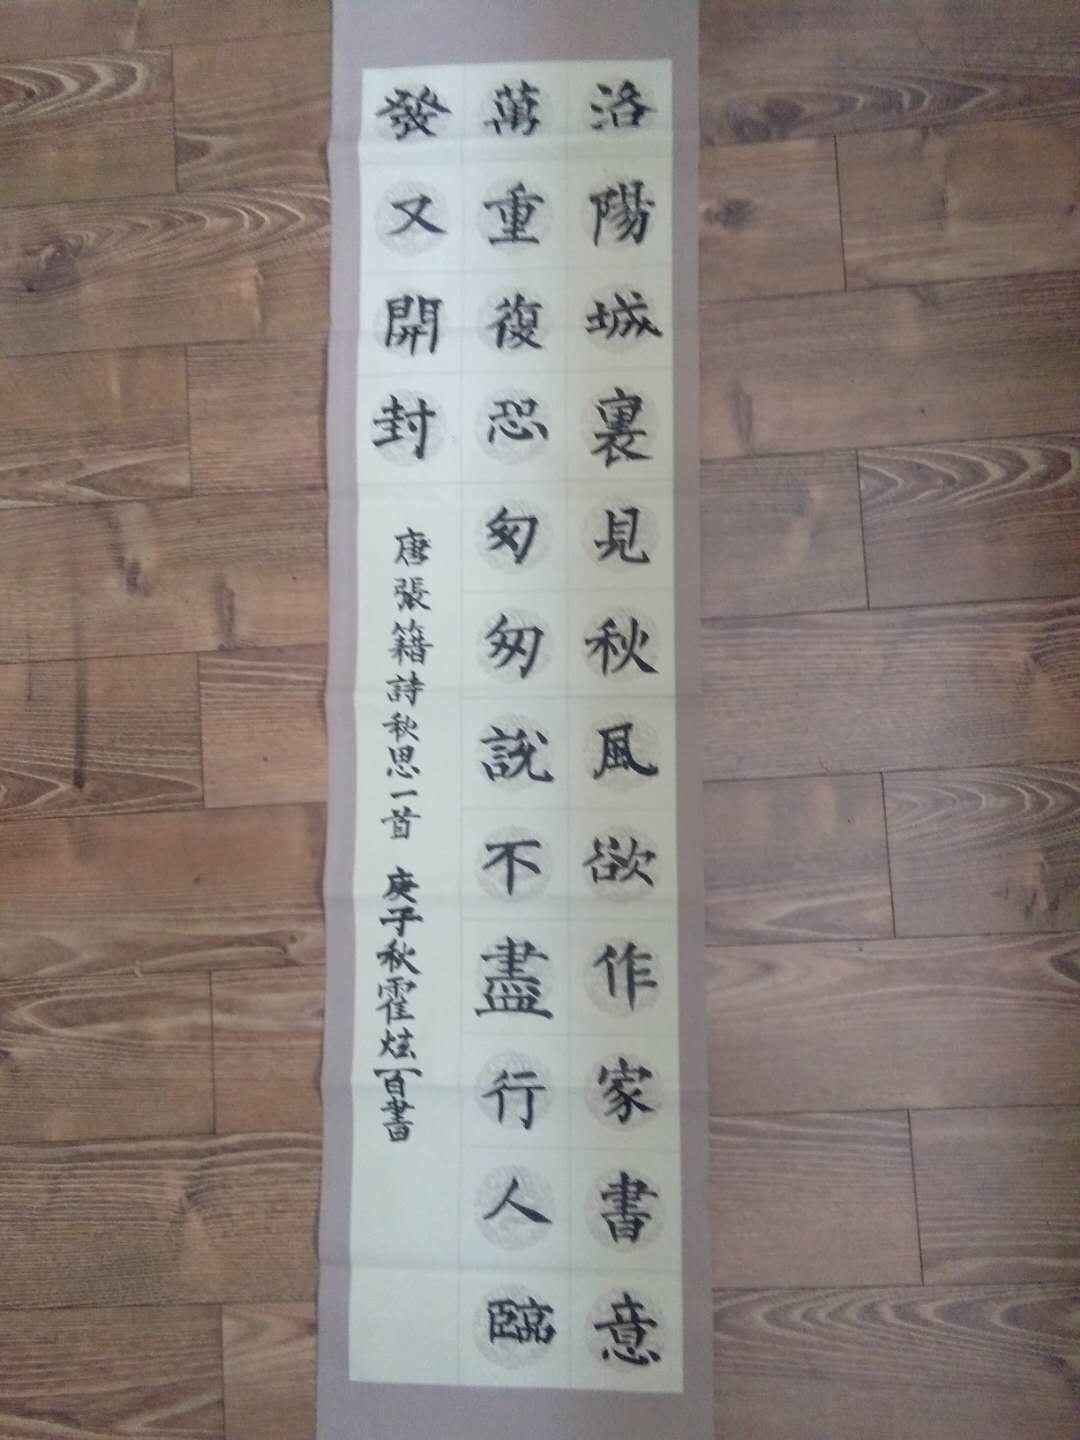 洛陽城裏見秋風欲作家書意
萬重復恐匆匆說不盡行人臨
發又開封
唐張籍詩秋思一首 庚子秋霍炫百書